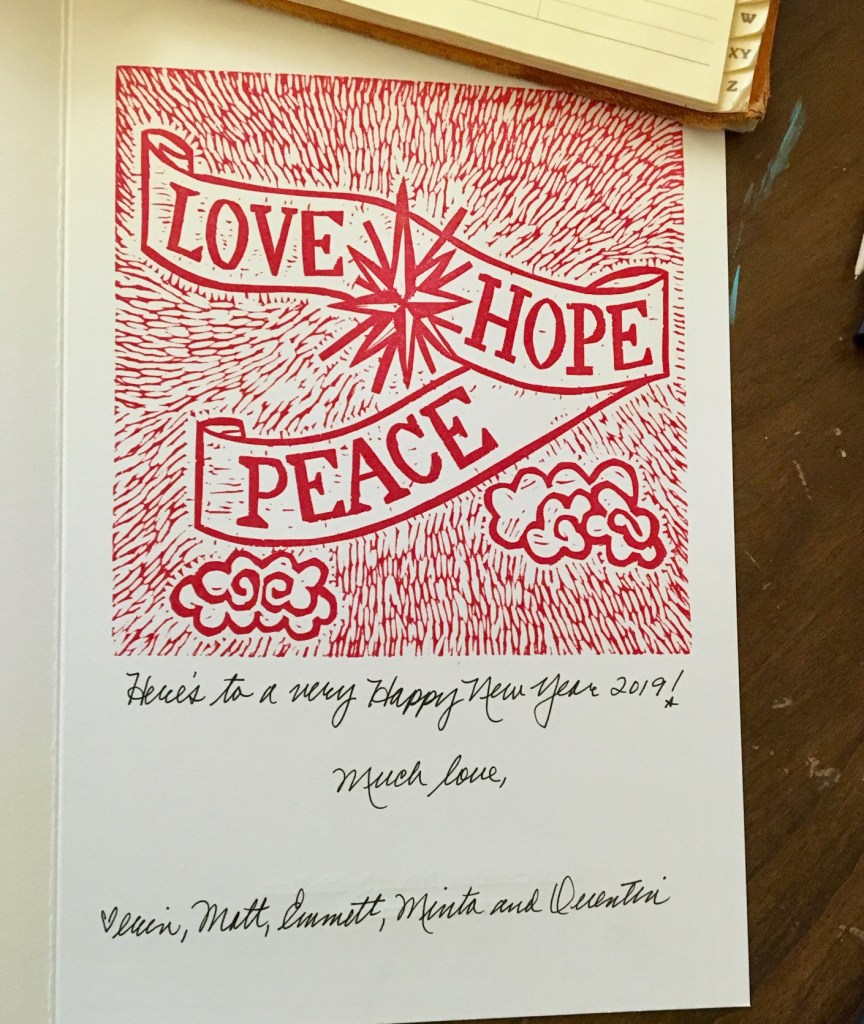 W
XY
Z
LOVE
HOPE
PEACE
Here's to a very Happy New Year 2019!
Much love,
♡erin, Matt, Emmett, Minta and Quentin